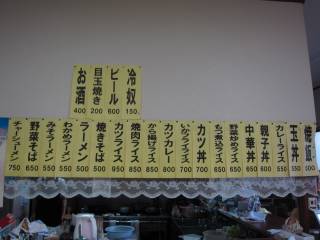 冷奴 150
ビール 600
目玉焼き 200
お酒 400
焼飯 500
玉丼 550
カレーライス 550
親子丼 650
中華丼 650
野菜炒めライス 650
もつ煮込ライス 650
カツ丼 700
いかフライライス 700
カツカレー 800
から揚げライス 850
焼肉ライス 850
カツライス 950
焼きそば 500
ラーメン 500
わかめラーメン 550
みそラーメン 550
野菜そば 650
チャーシューメン 750